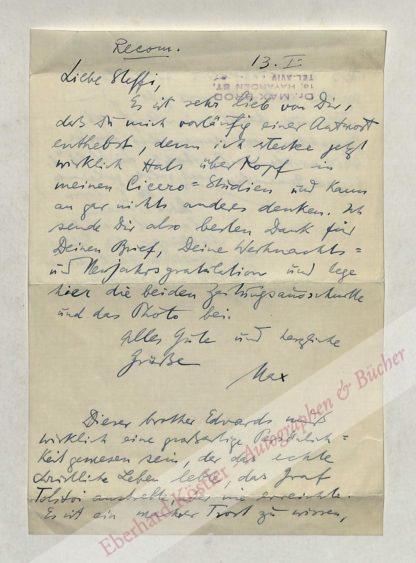 Recom.
13. I.
Dr. MAX BROD
16, HAYARDEN ST.
TEL-AVIV
Liebe Steffi,
Es ist sehr lieb von Dir,
daß Du mich vorläufig einer Antwort
enthebst, denn ich stecke jetzt
wirklich Hals über Kopf in
meinen Cicero=Studien und kann
an gar nichts anderes denken. Ich
sende Dir also besten Dank für
Deinen Brief, Deine Weihnachts=
und Neujahrsgratulation und lege
hier die beiden Zeitungsausschnitte
und das Photo bei.
Alles Gute und herzliche
Grüße
Max
Dieser brother Edwards muß
wirklich eine großartige Persönlich=
keit gewesen sein, der das echte
christliche Leben lebte, das Graf
Tolstoi anstrebte, nie erreichte.
Es ist ein Trost zu wissen,
Eberhard Köstler - Autographen & Bücher